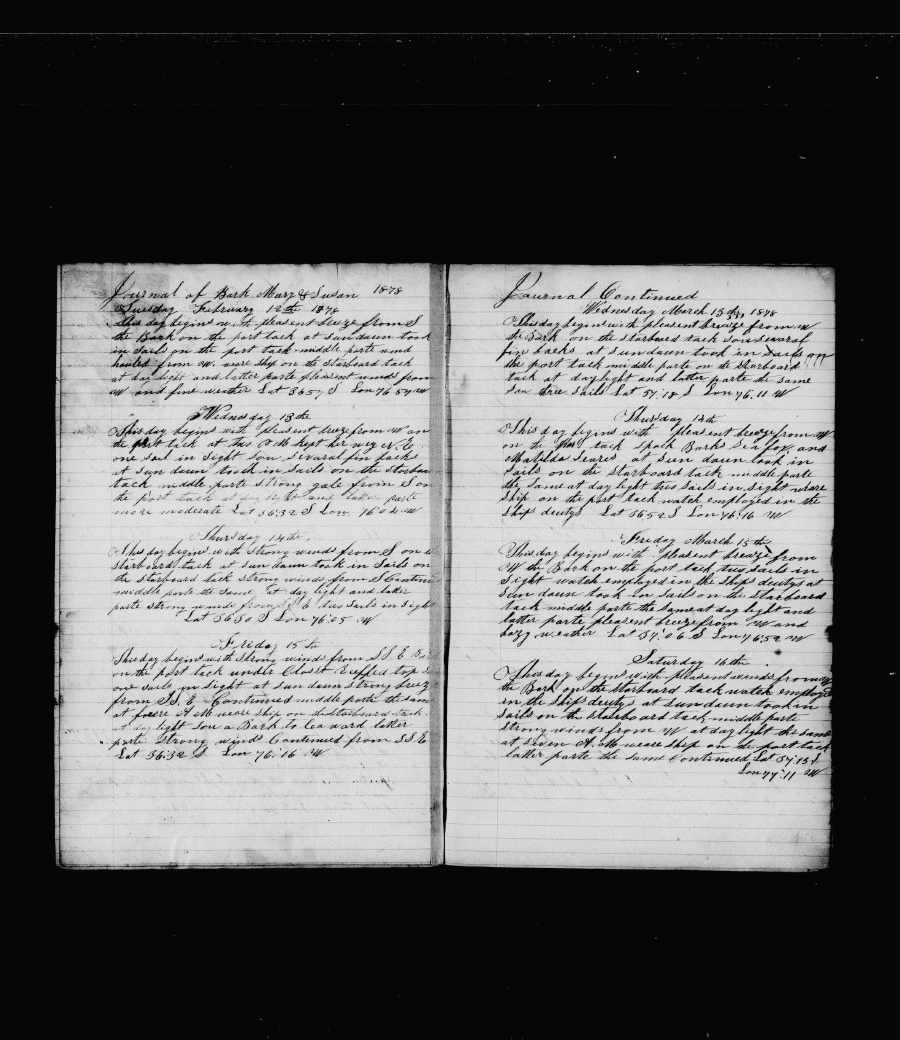 Journal of Bark Mary & Susan 1878
Tuesday February 12th 1878
This day begins with pleasent breeze from S
the Bark on the port tack at sun daun took
in Sails on the port tack middle parte wind
hauled from W. weare ship on the starboard tack
at day light and latter parte pleasent winds from
W and fine weather Lat 36 57 S Lon 76 54 W
Wednesday 13th
This day begins with pleasent breeze from W on
the port tack at two P M kept her way N. E.
one sail in sight saw sevaral fin backs
at sun daun took in sails on the starboar
tack middle parte strong gale from S on
the port tack at day light and latter parte
more moderate Lat 36:32 S Lon 76:04 W
Thursday 14th
This day begins with Strong winds from S on the
starboard tack at sun daun took in Sails on
the starboard tack strong winds from S Continu
middle parte the same at day light and latter
parte strong winds from S E two sails in sight
Lat 36 30 S Lon 76:05 W
Friday 15th
This day begins with Strong winds from S S E Ba
on the port tack under Closet Reeffed top s
one sails in sight at sun daun strong breez
from S S. E Continued middle parte the sam
at foure A M weare ship on the starboard tack
at day light saw a Bark to Leaward latter
parte Strong winds Continued from S S E
Lat 36:32 S Lon 76:16 W
Journal Continued
Wednesday March 13th 1878
This day begins with pleasent breeze from W
the Bark on the starboard tack saw sevaral
fin backs at sun daun took in sails
the port tack middle parte on the starboard
tack at daylight and latter parte the same
saw three Sails Lat 37.18 S Lon 76.11 W
Thursday 14th
This day begins with pleasent breeze from W
on the port tack Spock Barks Sea fox and
Matilda Seares at sun daun took in
sails on the starboard tack middle parte
the same at day light two sails in sight weare
ship on the port tack watch employed in the
ships deutys Lat 36 52 S Lon 76:16 W
Friday March 15th
This day begins with pleasent breeze from
W the Bark on the port tack two sails in
Sight watch employed in the ships deutys at
sun daun took in sails on the starboard
tack middle parte the same at day light and
latter parte pleasent breeze from W and
hazy weather Lat 37:06 S Lon 76,52 W
Saturday 16th
This day begins with pleasent winds from W
the Bark on the starboard tack watch employe
in the ships deutys at sun daun took in
Sails on the starboard tack middle parte
strong winds from W at day light the same
at seven A. M weare ship on the port tack
latter parte the same Continued Lat 37:13 S
Lon 77:11 W